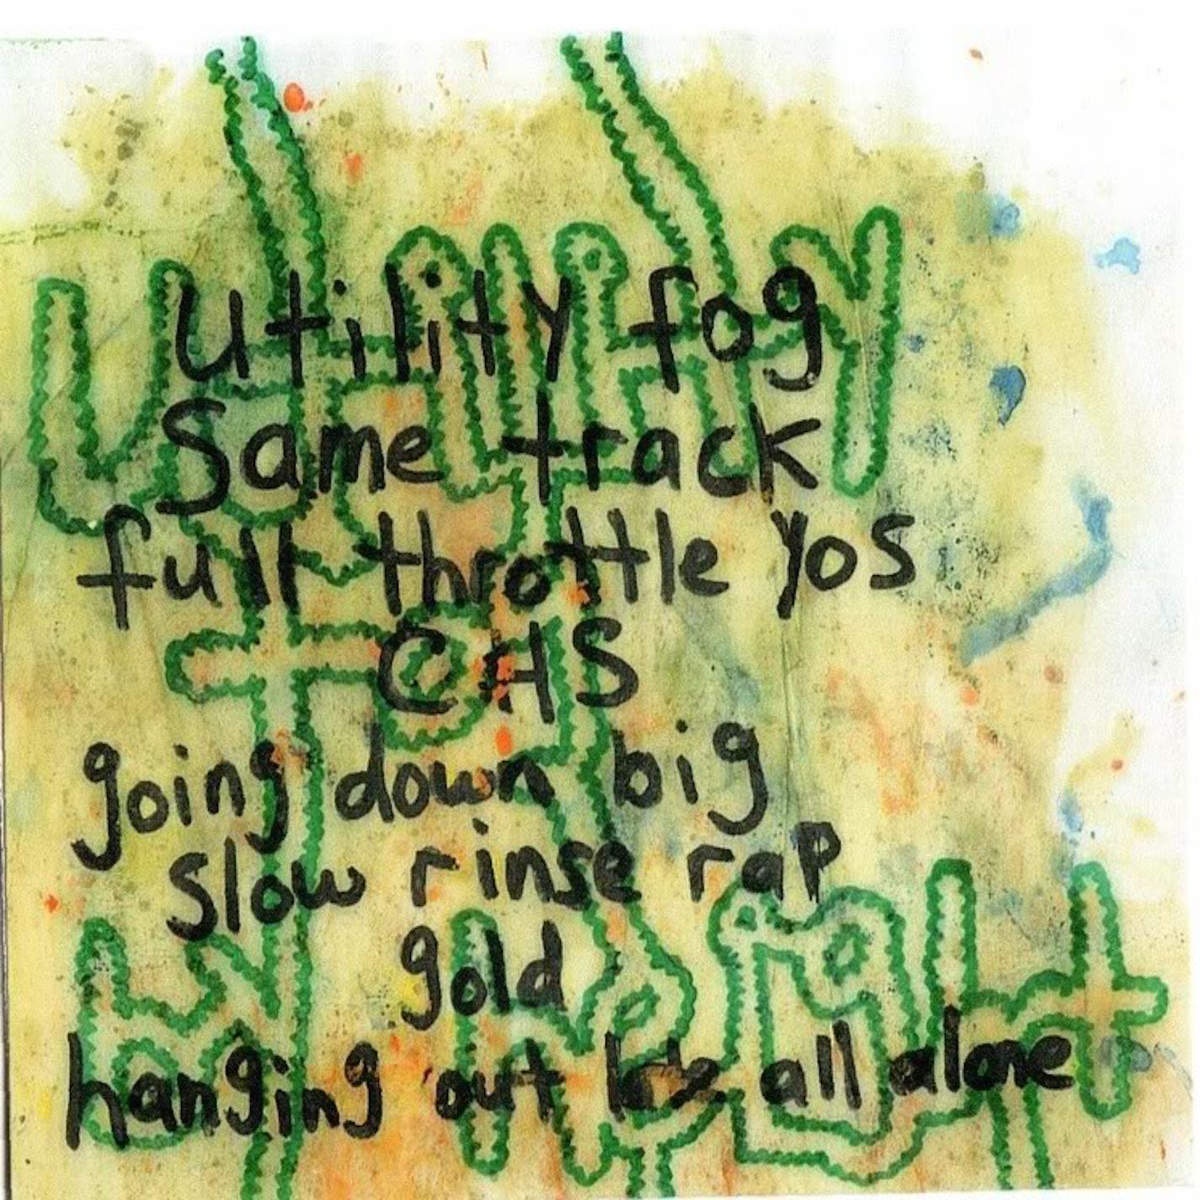 Utility fog
Same track
full throttle Yos
CHS
going down big
slow rinse rap
gold
hanging out all alone